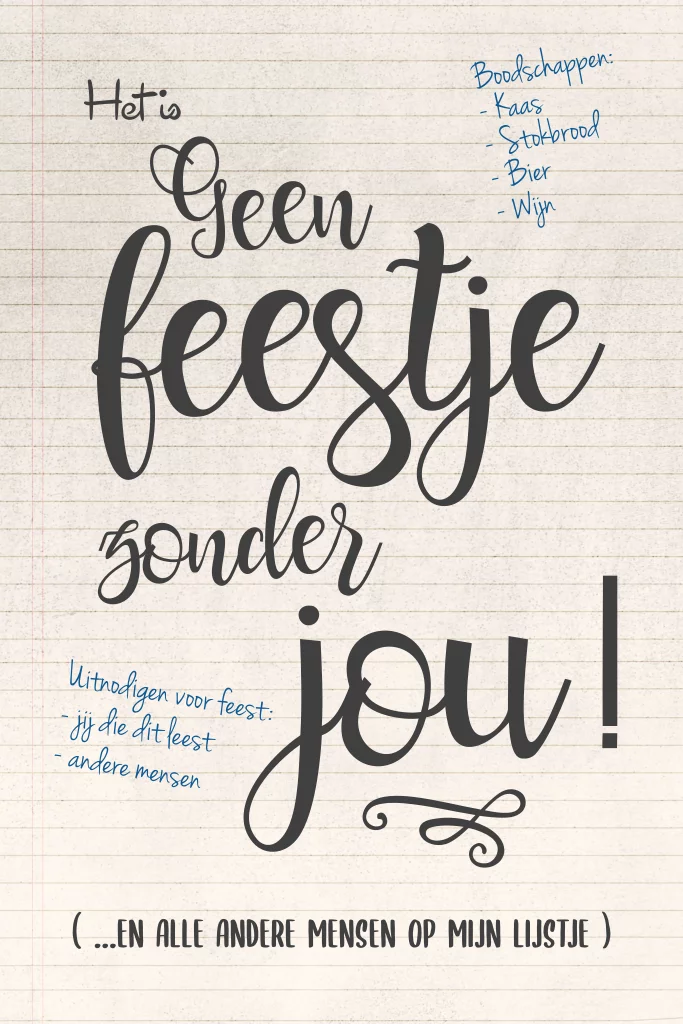 Het is
Geen
feestje
zonder
jou!
Boodschappen:
- Kaas
- Stokbrood
- Bier
- Wijn
Uitnodigen voor feest:
- jij die dit leest
- andere mensen
( ...EN ALLE ANDERE MENSEN OP MIJN LIJSTJE )